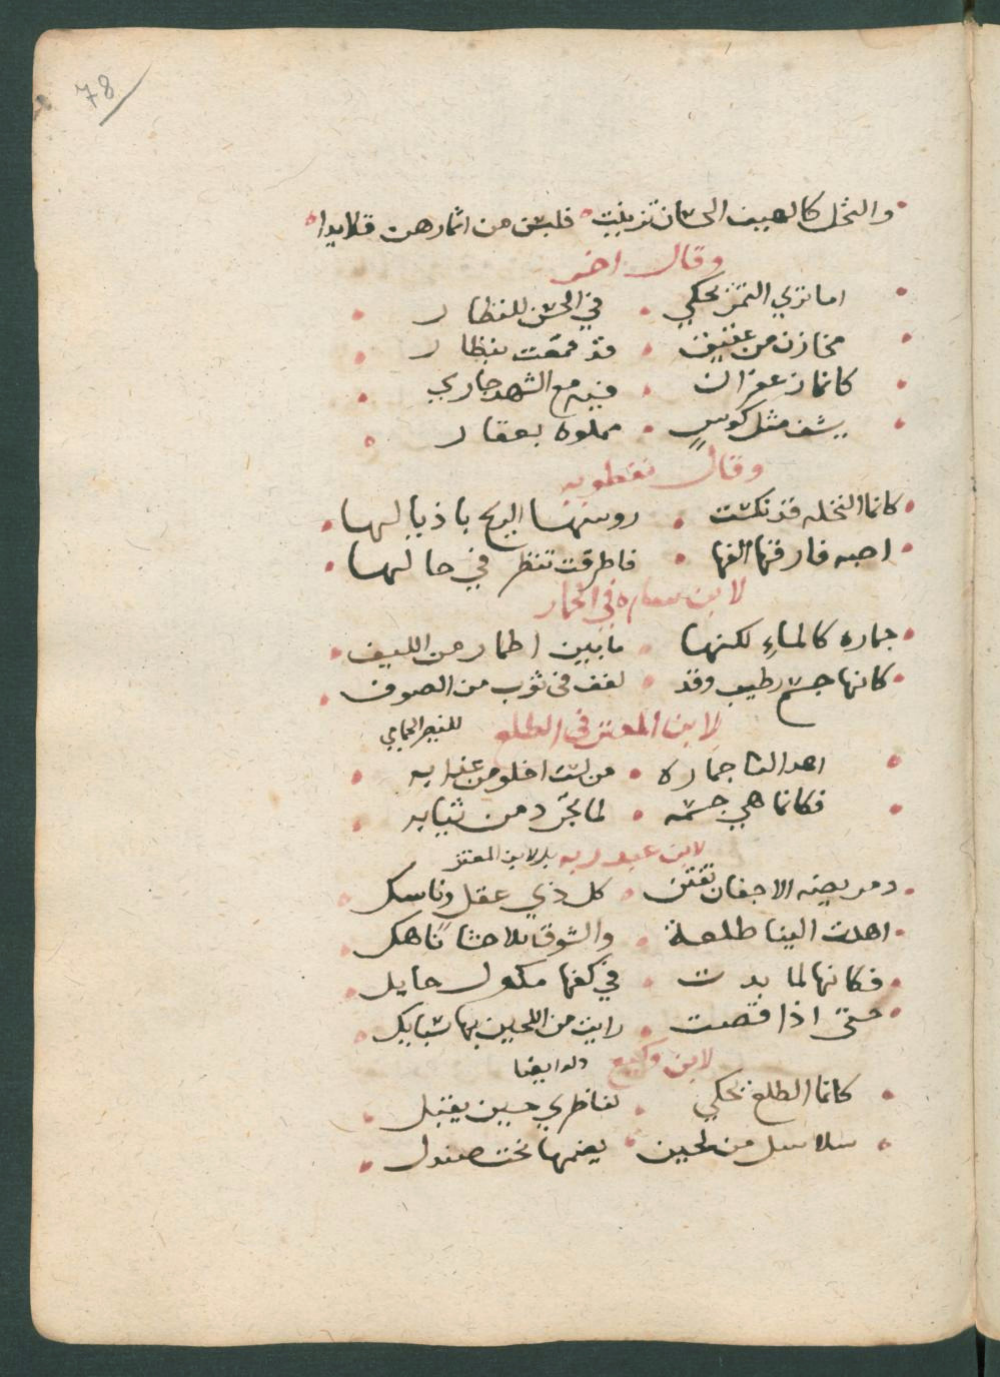 78
والنخل كالهيف الحسان تزينت فلبسن من اثمارهن قلايدا
وقال اخر
اما تري التمر يحكي في الحسن للنظار
مخازن من عقيق قد قمعت بنظار
كانما زعفران فيه مع الشهد جاري
يشف مثل كوس مملوة بعقار
وقال نفطويه
كانما النخله قد نكست روسها الريح باذيالها
احبه فارقها الفها فاطرقت تنظر في حالها
لابن ساره في الجمار
جماره كالماء لكنها مابين اطمار من الليف
كانها جسم رطيب وقد لفف في ثوب من الصوف
لابن المعتز في الطلع للنصير الحمامي
اهد النا جماره من لست اخلو من عذابه
فكانما هي جسمه لما تجرد من ثيابه
لابن عبد ربه بل لابن المعتز
ومريضه الاجفان تفتن كل ذي عقل وناسك
اهدت الينا طلعة والشوق للاحشا ناهك
فكانها لما بدت في كفها مكوك حايك
حتى اذا قصت رايت من اللجين بها شبايك
لابن وكيع وله ايضا
كانما الطلع يحكي لناظري حين يقبل
سلاسل من لجين يضمها تخت صندل